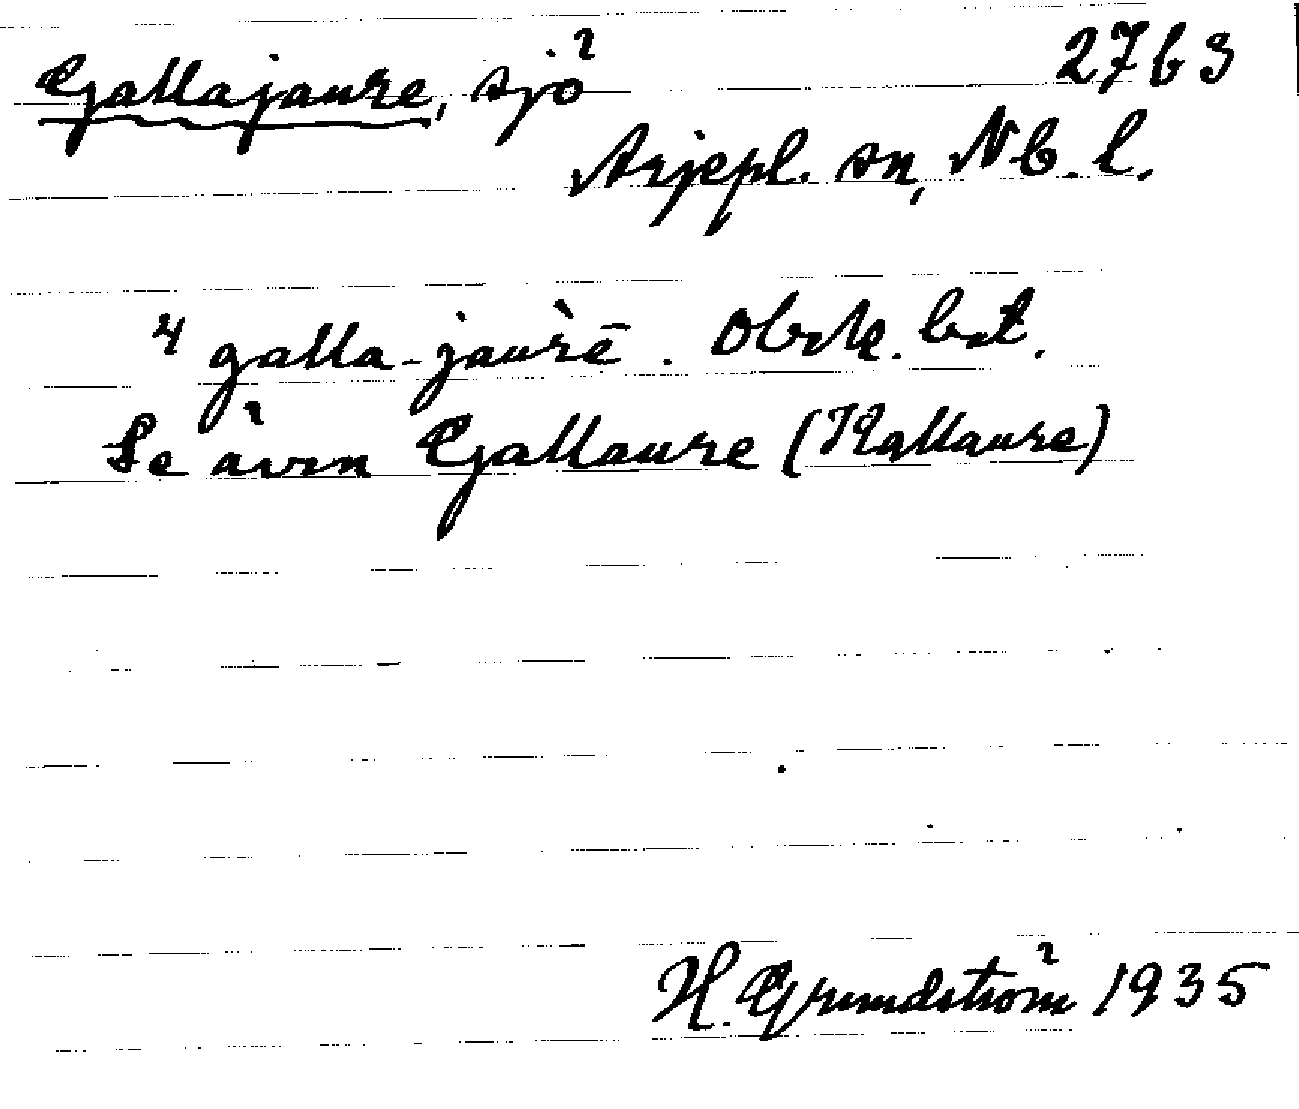 Gallajaure, sjö 27 b 3
Arjepl. sn, Nb. l.
galla-jau̇rē. Obekt. bet.
Se även Gallaure (Kallaure)
H. Grundström 1935